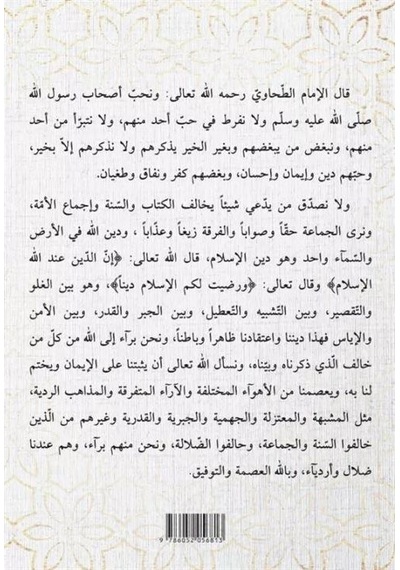 قال الإمام الطّحاويّ رحمه الله تعالى: ونحبّ أصحاب رسول الله
صلّى الله عليه وسلّم ولا نفرط في حبّ أحد منهم، ولا نتبرّأ من أحد
منهم، ونبغض من يبغضهم وبغير الخير يذكرهم ولا نذكرهم إلاّ بخير،
وحبّهم دين وإيمان وإحسان، وبغضهم كفر ونفاق وطغيان.
ولا نصدّق من يدّعي شيئاً يخالف الكتاب والسّنة وإجماع الأمّة،
ونرى الجماعة حقّاً وصواباً والفرقة زيغاً وعذّاباً ، ودين الله في الأرض
والسّمآء واحد وهو دين الإسلام، قال الله تعالى: ﴿إنّ الدّين عند الله
الإسلام﴾ وقال تعالى: ﴿ورضيت لكم الإسلام ديناً﴾، وهو بين الغلو
والتّقصير، وبين التّشبيه والتّعطيل، وبين الجبر والقدر، وبين الأمن
والإياس فهذا ديننا واعتقادنا ظاهراً وباطناً، ونحن برآء إلى الله من كلّ من
خالف الّذي ذكرناه وبيّناه، ونسأل الله تعالى أن يثبتنا على الإيمان ويختم
لنا به، ويعصمنا من الأهوآء المختلفة والآرآء المتفرقة والمذاهب الردية،
مثل المشبهة والمعتزلة والجهمية والجبرية والقدرية وغيرهم من الّذين
خالفوا السّنة والجماعة، وحالفوا الضّلالة، ونحن منهم برآء، وهم عندنا
ضلال وأرديآء، وبالله العصمة والتوفيق.
9 786052 056813